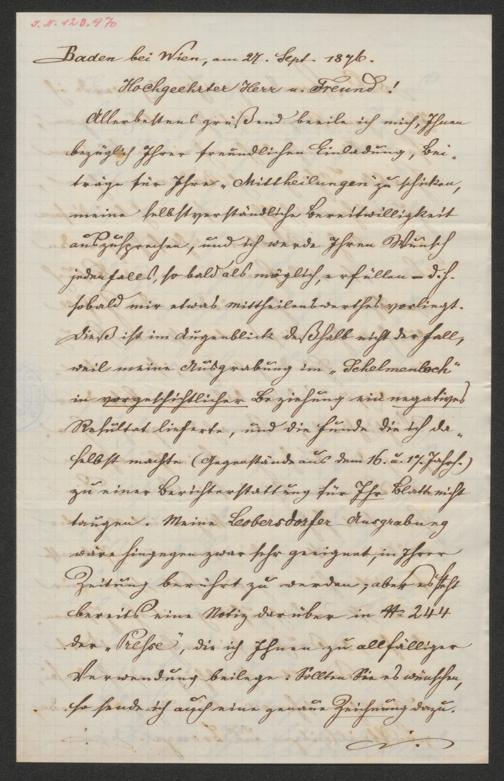 I.N. 120.970
Baden bei Wien, am 27. Sept. 1876.
Hochgeehrter Herr u. Freund!
Allerbestens grüßend beeile ich mich, Ihnen
bezüglich Ihrer freundlichen Einladung, Bei-
träge für Ihre „Mittheilungen" zu schicken,
meine selbstverständliche Bereitwilligkeit
auszusprechen, und ich werde Ihren Wunsch
jedenfalls, so bald als möglich, erfüllen – d. h.
sobald mir etwas mittheilenswerthes vorliegt.
Dieß ist im Augenblick deßhalb nicht der Fall,
weil meine Ausgrabung im „Schelmenloch"
in vorgeschichtlicher Beziehung ein negatives
Resultat lieferte, und die Funde die ich da-
selbst machte (Gegenstände aus dem 16. u. 17. Jahrh.)
zu einer Berichterstattung für Ihr Blatt nicht
taugen. Meine Leobersdorfer Ausgrabung
wäre hingegen zwar sehr geeignet, in Ihrer
Zeitung berührt zu werden, aber es steht
bereits eine Notiz darüber in № 244
der „Presse", die ich Ihnen zu allfälliger
Verwendung beilege. Sollten Sie es wünschen,
so sende ich auch eine genaue Zeichnung dazu.